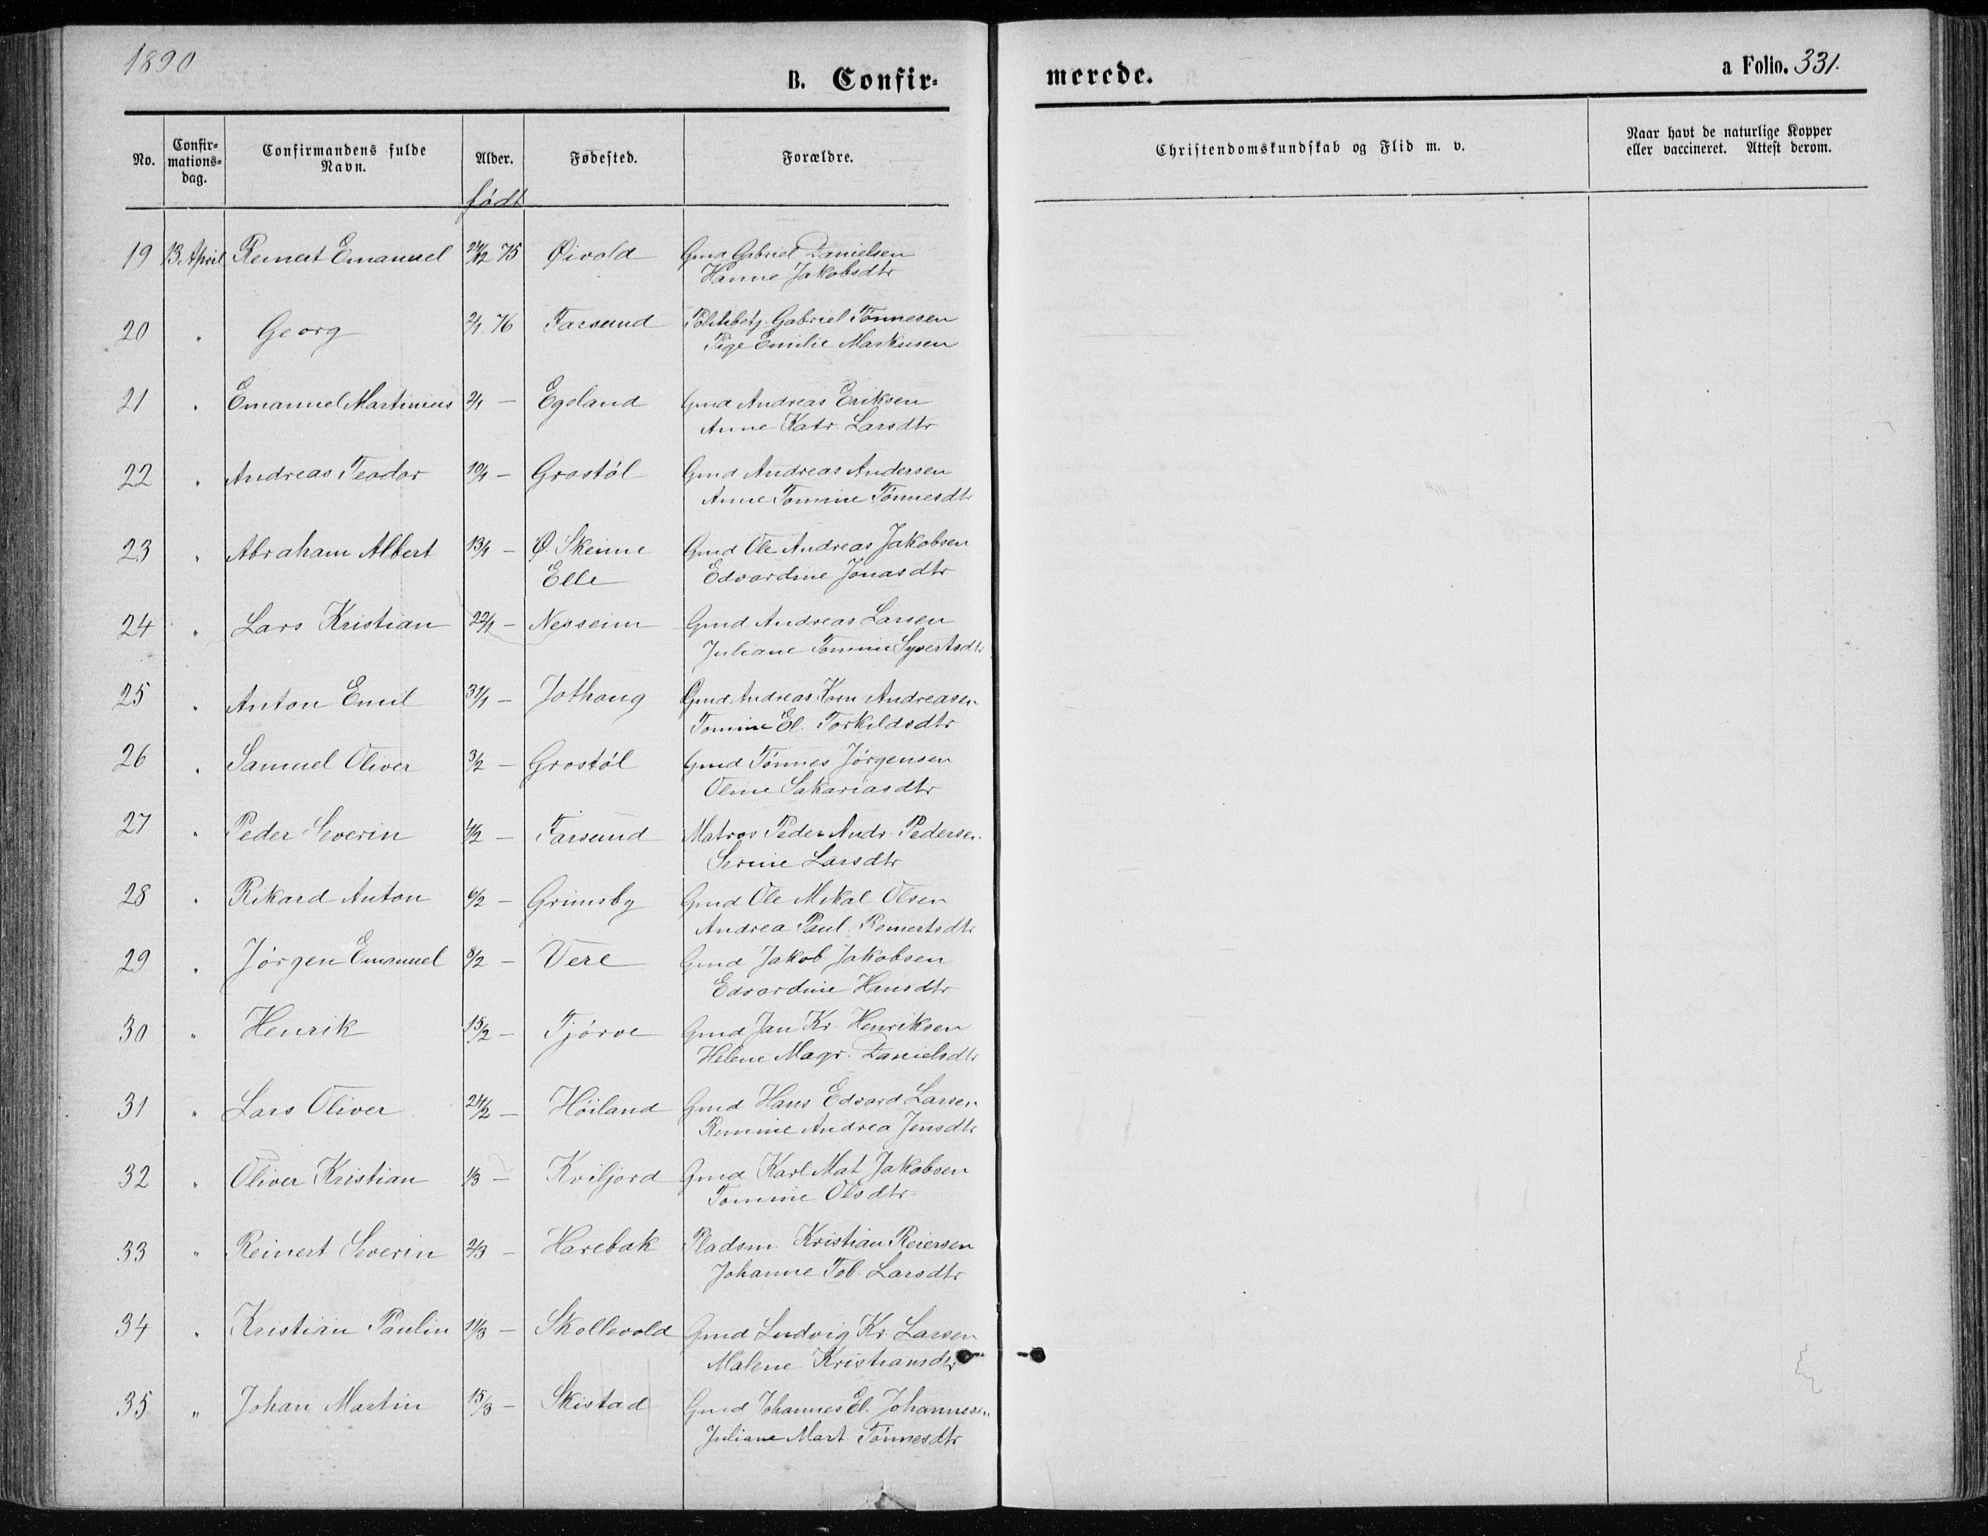 1890
B. Confir- merede.
a Folio. 331.
No.
Confir-
mations-
dag.
Confirmandens fulde
Navn.
Alder.
født
Fødested.
Forældre.
Christendomskundskab og Flid m. v.
Naar havt de naturlige Kopper
eller vaccineret. Attest derom.
19 13. April Reinert Emanuel 24/12 75 Øivold Gmd Gabriel Danielsen
Hanne Jakobsdtr
20 " Georg 2/1 76 Farsund Politibetj. Gabriel Tønnesen
Pige Emilie Markusen
21 " Emanuel Martinius 2/1 — Egeland Gmd Andreas Eriksen
Anne Katr. Larsdtr
22 " Andreas Teodor 10/1 — Grostøl Gmd Andreas Andersen
Anne Tomine Tønnesdtr
23 " Abraham Albert 13/1 — Ø Skeime Gmd Ole Andreas Jakobsen
Elle Edvardine Jonasdtr
24 " Lars Kristian 22/1 — Nesseim Gmd Andreas Larsen
Juliane Tomine Syvertsdtr
25 " Anton Emil 31/1 — Jothaug Gmd Andreas Korn. Andreasen
Tomine El. Torkildsdtr
26 " Samuel Oliver 3/2 — Grostøl Gmd Tønnes Jørgensen
Oline Sakariasdtr
27 " Peder Severin 4/2 — Farsund Matros Peder Andr. Pedersen
Serine Larsdtr
28 " Rikard Anton 6/2 — Grimsby Gmd Ole Mikal Olsen
Andrea Paul. Reinertsdtr
29 " Jørgen Emanuel 8/2 — Vere Gmd Jakob Jakobsen
Edvardine Hansdtr
30 " Henrik 15/2 — Tjørve Gmd Jan Kr. Henriksen
Helene Magr. Danielsdtr
31 " Lars Oliver 24/2 — Høiland Gmd Hans Edvard Larsen
Remine Andrea Jensdtr
32 " Oliver Kristian 1/3 — Kviljord Gmd Karl Mat Jakobsen
Tomine Olsdtr
33 " Reinert Severin 2/3 — Harebak Pladsm Kristian Reiersen
Johanne Tob. Larsdtr
34 " Kristian Paulin 11/3 — Skollevold Gmd Ludvig Kr. Larsen
Malene Kristiansdtr
35 " Johan Martin 15/3 — Skistad Gmd Johannes El. Johannesen
Juliane Mart. Tønnesdtr